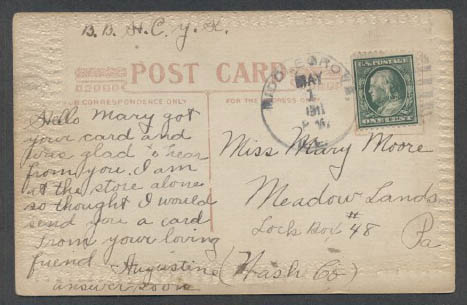 B. B. H. C. Y. K.
POST CARD
CORRESPONDENCE ONLY
FOR THE ADDRESS ONLY
Hello Mary got
your card and
was glad to hear
from you. I am
at the store alone
so thought I would
send you a card
From your loving
friend Augustine
answer soon
MIDDLEGROVE
MAY
1
1911
U.S. POSTAGE
ONE CENT
Miss Mary Moore
Meadow Lands
Lock Box # 48
Pa
(Wash Co)